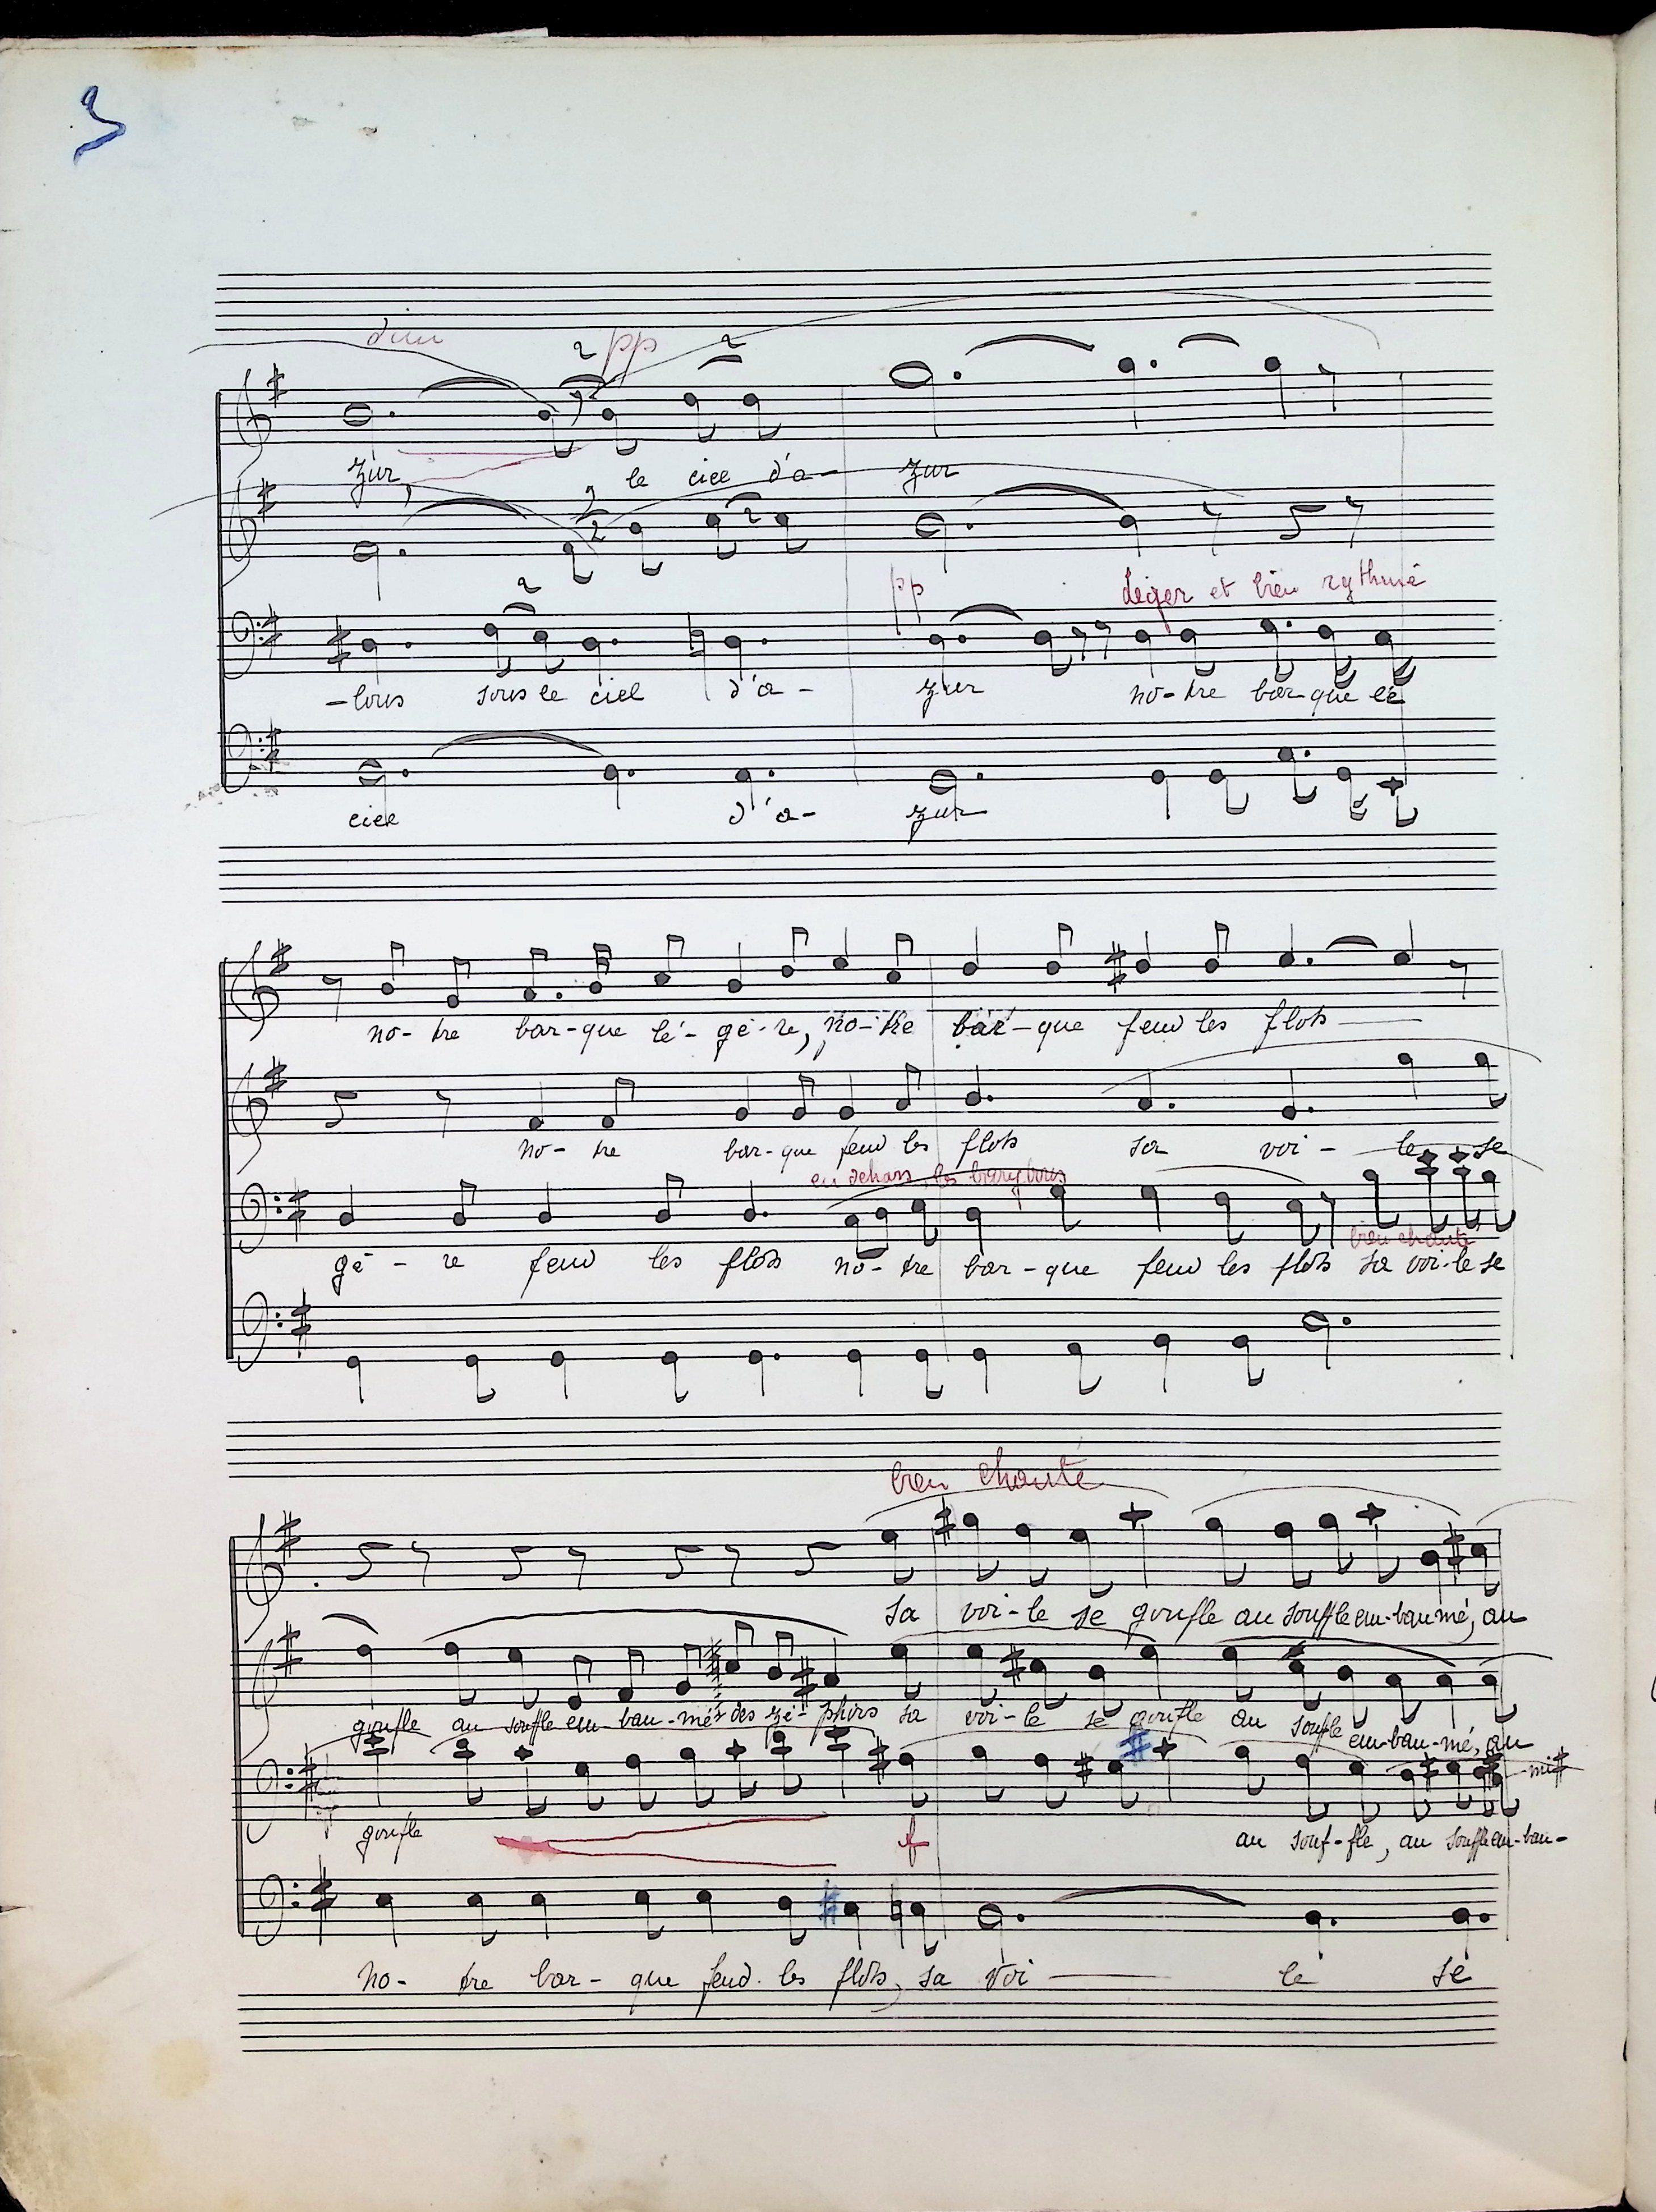 3
dim
2 pp 2
zur, le ciel d'a- zur
2
2 2
pp Léger et bien rythmé
2
-lons sous le ciel d'a- zur no-tre bar-que lé
ciel d'a- zur
no-tre bar-que lé-gè-re, no-tre bar-que fend les flots
no-tre bar-que fend les flots sa voi-le se
en dehors, les barytons
bien chanté
gè-re fend les flots no-tre bar-que fend les flots sa voi-le se
bien chanté
sa voi-le se gonfle au souffle em-baumé, au
gonfle au souffle em-bau-mé des zé-phirs sa voi-le se gonfle au souffle em-bau-mé, au
mi#
gonfle f au souf-fle, au souffle em-bau-
no-tre bar-que fend les flots, sa voi le se